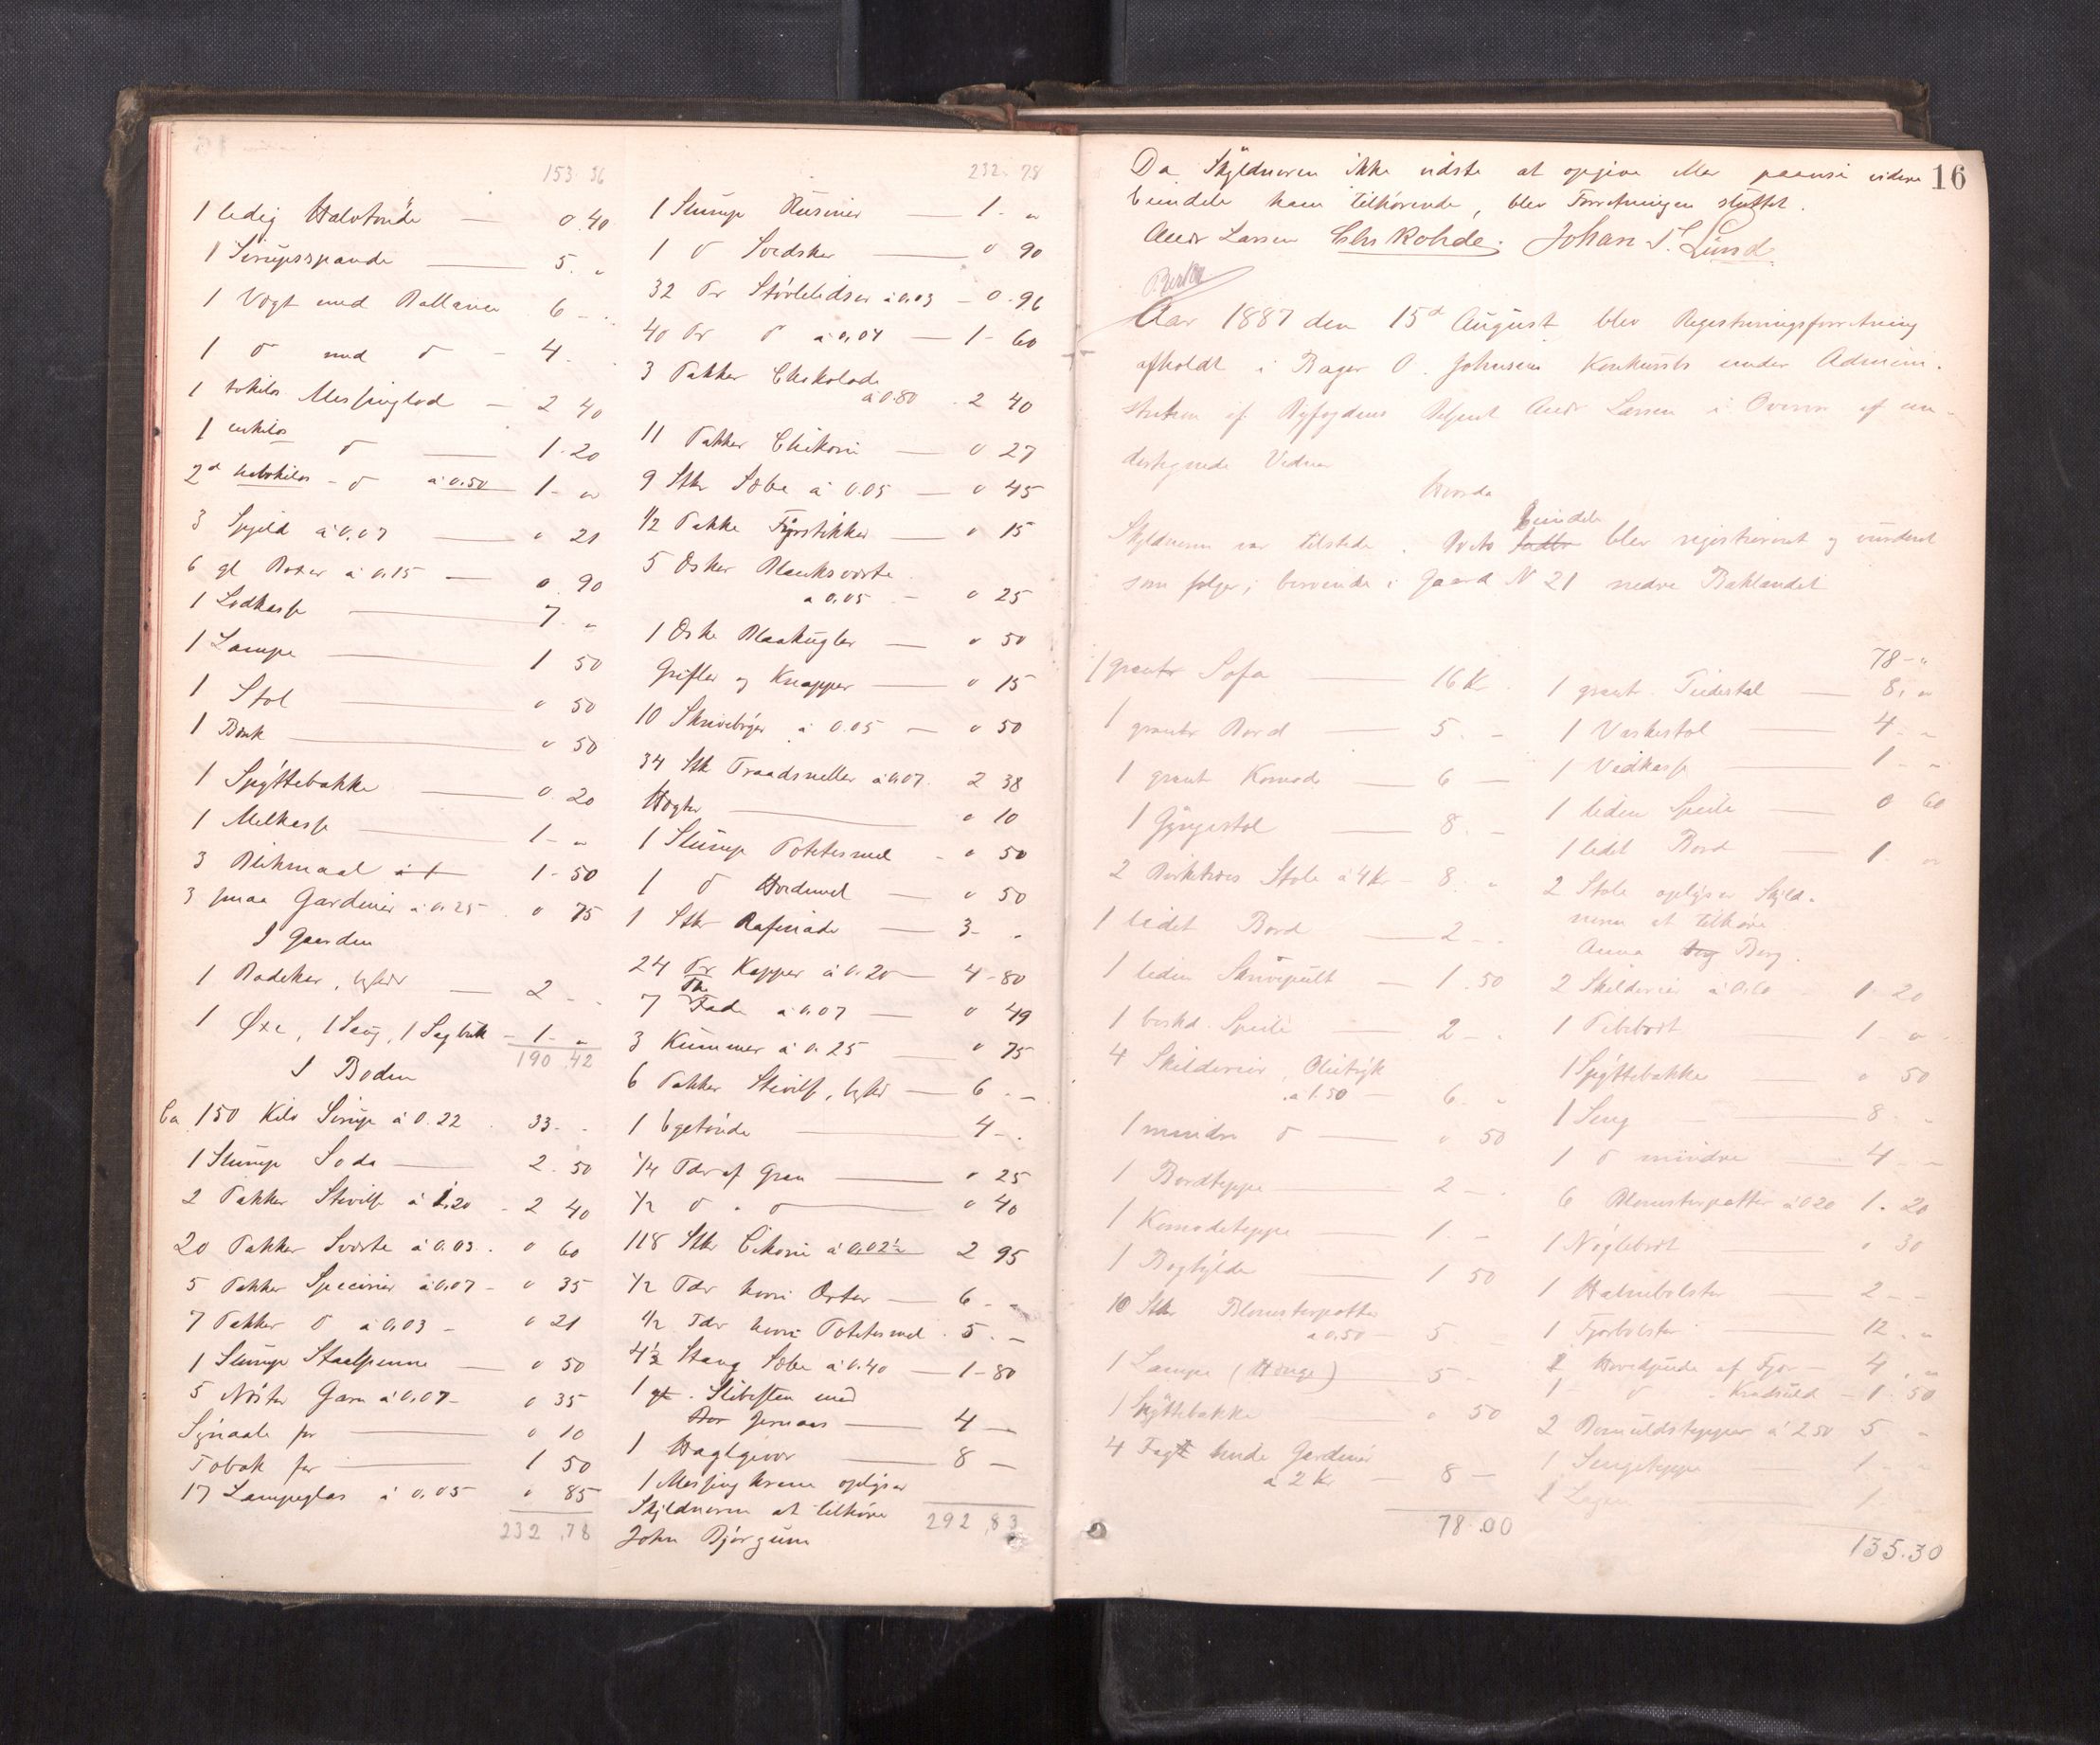 153.36
1 ledig Halvtønde — 0.40
1 Sirupsspande — 5. "
1 Vægt med Ballance 6 -
1 d med d - 4.
1 tokilos Messinglod - 2 40
1 enkilos d — 1.20
2d halvkilos - d à 0.50 1- "
3 Spjeld à 0.07 — " 21
6 gl à 0.15 — 0 90
1 — 7. "
1 Lampe — 1 50
1 Stol — " 50
1 Bænk — " 50
1 Spyttebakke — 0.20
1 Melkasse — 1- "
3 Blikmaal à 1 1-50
3 smaa Gardiner à 0.25 . " 75
I Gaarden
1 Badekar — 2 -
1 Øxe, 1 Saug, 1 Sagbuk - 1 - "
190.42
I Boden
Ca. 150 Kilo Sirup à 0.22 . 33. -
1 Slump Soda — 2.50
2 Pakker Stivelse à 1.20 - 2 40
20 Pakker Sværte à 0.03 . " 60
5 Pakker Specerier à 0.07 - " 35
7 Pakker d à 0.03 - " 21
1 Slump Staalpenne — " 50
5 Nøster Garn à 0.07 - " 35
Synaale for — " 10
Tobak for — 1 50
17 Lampeglas à 0.05 " 85
232.78
232.78
1 Slump Rusiner — 1. "
1 d Svedsker — " 90
32 Pr Støvlelidser à 0.03 - 0.96
40 Pr d à 0.04 — 1-60
3 Pakker Chokolade
à 0.80 . 2 40
11 Pakker Chikorie — " 27
9 Stkr Sæbe à 0.05 — " 45
1/2 Pakke Fyrstikker — " 15
5 Æsker Blanksværte
à 0.05 - " 25
1 Æske Blaakugler — " 50
Grifler og Knapper — " 15
10 Skrivebøger à 0.05 — " 50
34 Stk Traadsneller à 0.07. 2 38
Hægter — " 10
1 Slump Potetesmel - " 50
1 d Hvedemel — " 50
1 Stk Rafinade — 3- "
24 Pr Kopper à 0.20 — 4-80
7 Fade à 0.07 — " 49
3 Kummer à 0.25 — " 75
6 Pakker Stivelse — 6. -
1 Egetønde — 4 -.
1/4 Tdr af Gran — " 25
1/2 d " d — " 40
118 Stkr Cikorie à 0.02½ 2 95
1/2 Tdr Erter — 6 - "
1/2 Tdr Potetesmel . 5. -
4½ Stang Sæbe à 0.40 — 1-80
1 gl. Slibesten med
Jernaas — 4 —
1 — 8 —
1 Messingkrane oplyser
Skyldneren at tilhøre 292.83
John Bjørgum
16
Da Skyldneren ikke vidste at opgive eller paavise videre
Eiendele ham tilhørende, blev Forretningen sluttet.
Andr Larsen Chr Rohde. Johan S. Lund
Aar 1887 den 15d August blev Registreringsforretning
afholdt i Bager O. Johnsens Konkursbo under Admini-
stration af Byfogdens Andr Larsen i Overvær af un-
dertegnede Vidner
Hvorda
Skyldneren var tilstede. Boets Eiendele blev registreret og vurderet
som følger, beroende i Gaard N 21 nedre Baklandet
1 Sofa — 16 Kr
1 Bord — 5. -
1 Komode — 6 —
1 Gyngestol — 8. -
2 Birketræes Stole à 4 Kr - 8. "
1 lidet Bord — 2 - .
1 liden Skrivepult — 1.50
1 Speile — 2 - .
4 Skilderier, Olietryk
à 1.50 — 6. "
1 mindre d — " 50
1 Bordteppe — 2 - .
1 Komodeteppe — 1. -
1 Boghylde — 1 50
10 Stk Blomsterpotter
à 0.50 - 5
1 Lampe (Hænge) — 5 -
1 Spyttebakke " 50
4 Fag hvide Gardiner
à 2 Kr — 8 —
78.00
78 - "
1 — 8. "
1 Vaskestol — 4 - "
1 Vedkasse — 1 - "
1 liden Speile — 0 60
1 lidet Bord — 1. "
2 Stole oplyser Skyld-
neren at tilhøre
Anna Berg.
2 Skilderier à 0.60 1-20
1 Pibebræt — 1 - "
1 Spyttebakke — " 50
1 Seng — 8 -
1 d mindre — 4 - -
6 Blomsterpotter à 0.20 1.20
1 Nøglebræt — " 30
1 Halmbolster — 2 - -
1 Fjærbolster — 12. "
2 Hovedpude af Fjær — 4. "
1 d " Krøluld - 1.50
2 Bomuldstepper à 2.50 5 "
1 Sengeteppe — 1 -
1 Lagen — 1.
135.30